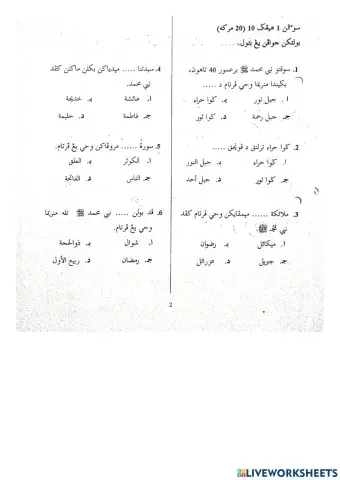 سوءالن 1 هيڠݢ 10 (20 مركه)
بولتكن جواڤن يڠ بتول.
1. سواتو نبي محمد ﷺ برعمور 40 تاهون،
بݢيندا منريما وحي ڤرتام د ......
ا. جبل نور
ب. كوا حراء
ج. جبل رحمة
د. كوا ثور
2. كوا حراء ترلتق د ......
ا. كوا حراء
ب. جبل النور
ج. كوا ثور
د. جبل أحد
3. ملائكة ...... ڤرتام كڤد
نبي محمد ﷺ.
ا. ميكائل
ب. رضوان
ج. جبريل
د. عزرائل
4. سيدتنا ..... بكلن ماكنن كڤد
نبي محمد.
ا. عائشة
ب. خديجة
ج. فاطمة
د. حليمة
5. سورة ...... مروڤاكن وحي يڠ ڤرتام.
ا. الكوثر
ب. العلق
ج. الناس
د. الفاتحة
6. ڤد بولن ..... نبي محمد ﷺ تله منريما
وحي يڠ ڤرتام.
ا. شوال
ب. ذوالحجة
ج. رمضان
د. ربيع الأول
2
LIVEWORKSHEETS